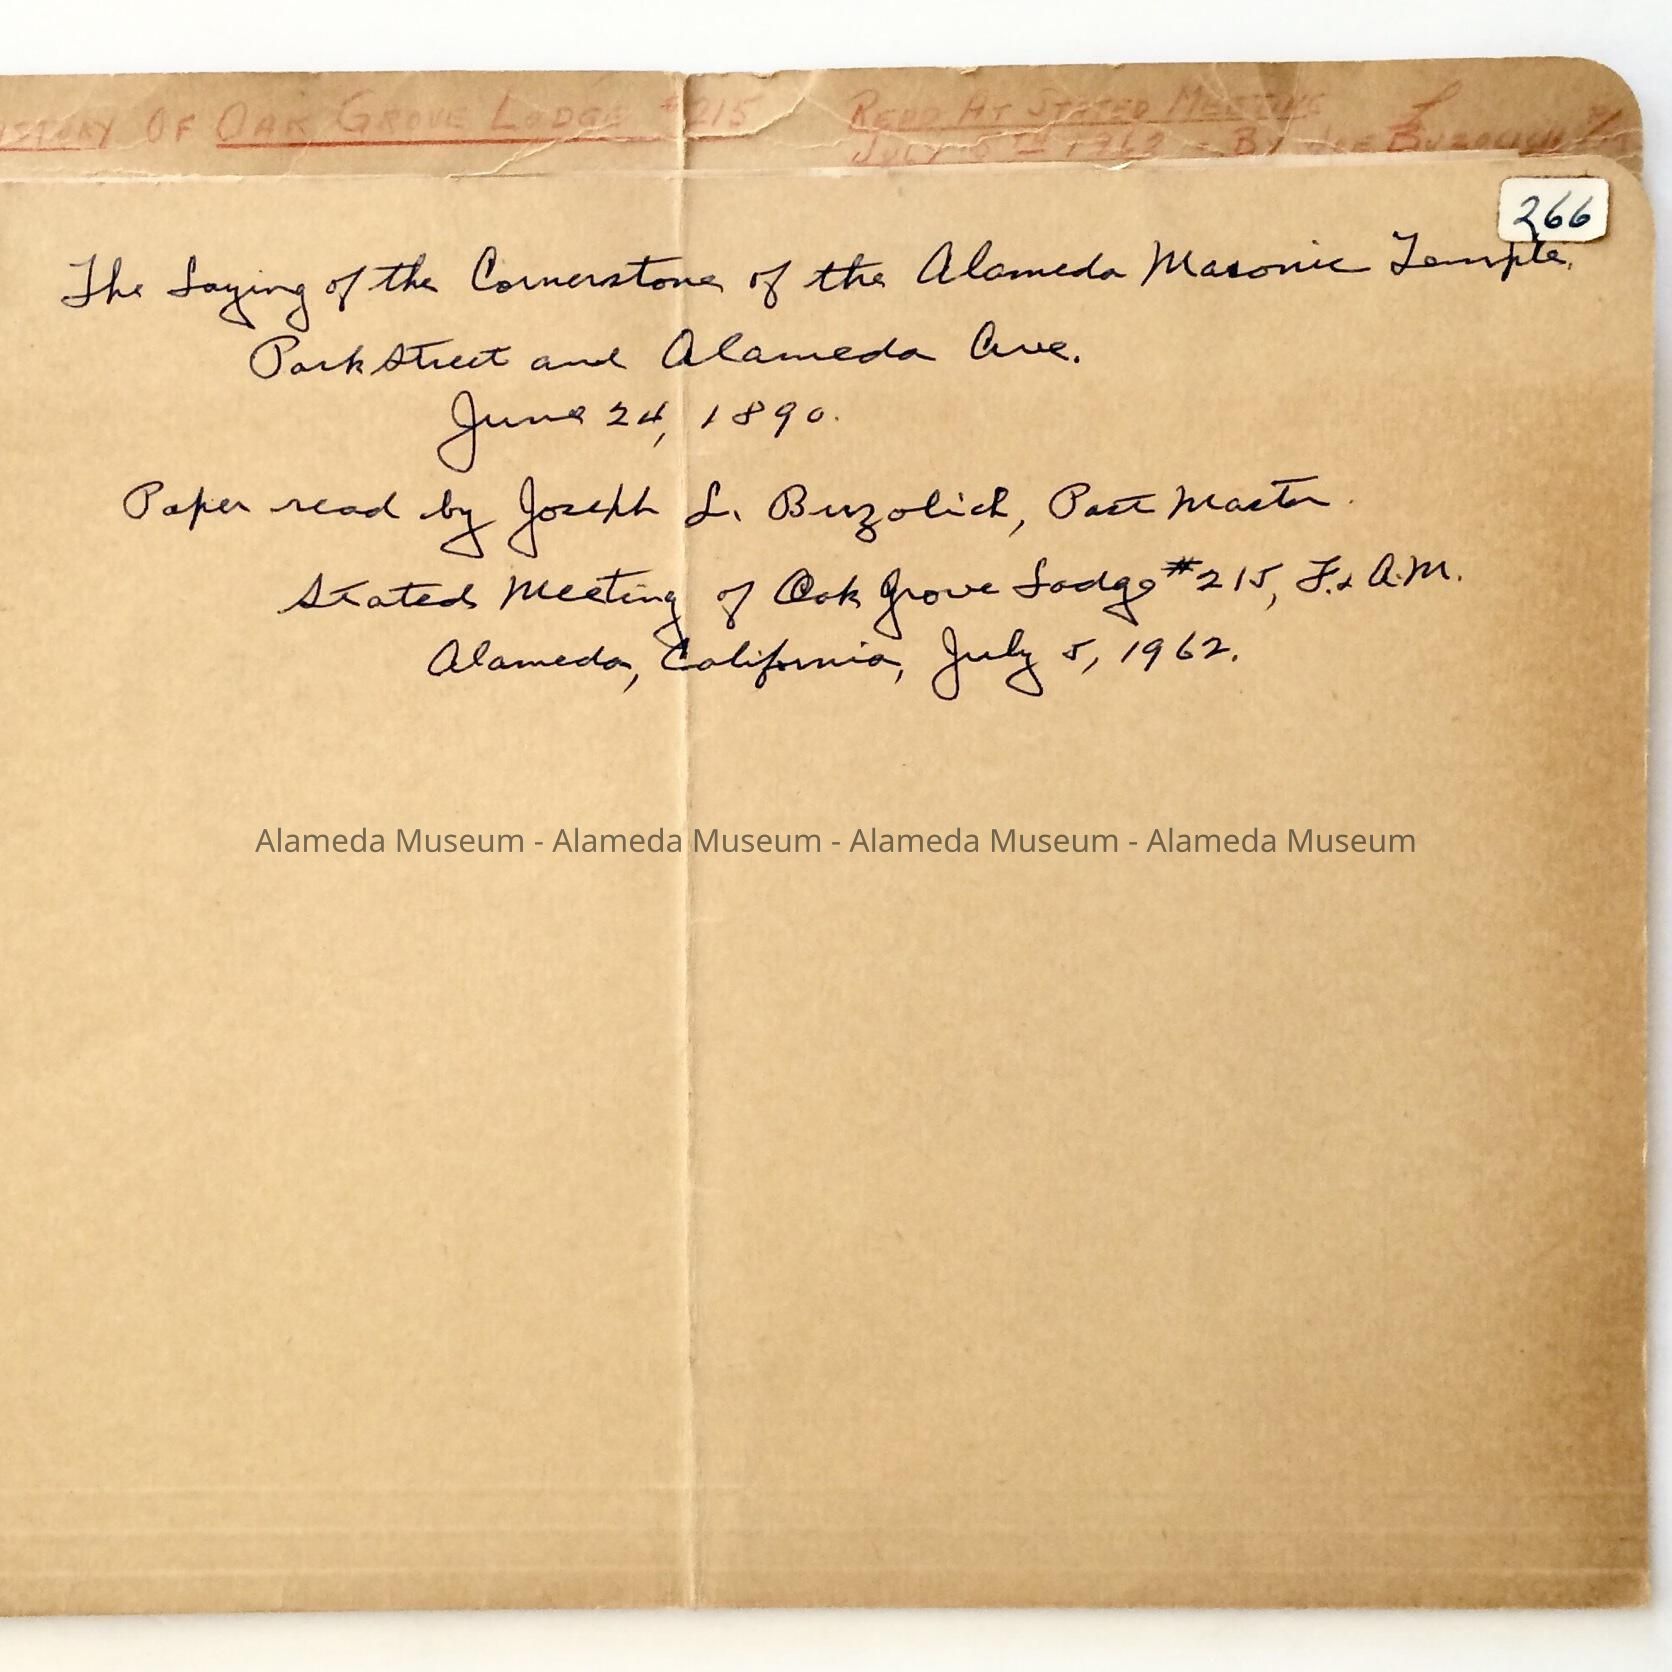 OF OAK GROVE LODGE #215
READ AT STATED MEETING
JULY 5TH 1962 - BY JOE BUZOLICH
266
The Laying of the Cornerstone of the Alameda Masonic Temple,
Park Street and Alameda Ave.
June 24, 1890.
Paper read by Joseph L. Buzolich, Past Master.
Stated Meeting of Oak Grove Lodge #215, F. & A.M.
Alameda, California, July 5, 1962.
Alameda Museum - Alameda Museum - Alameda Museum - Alameda Museum